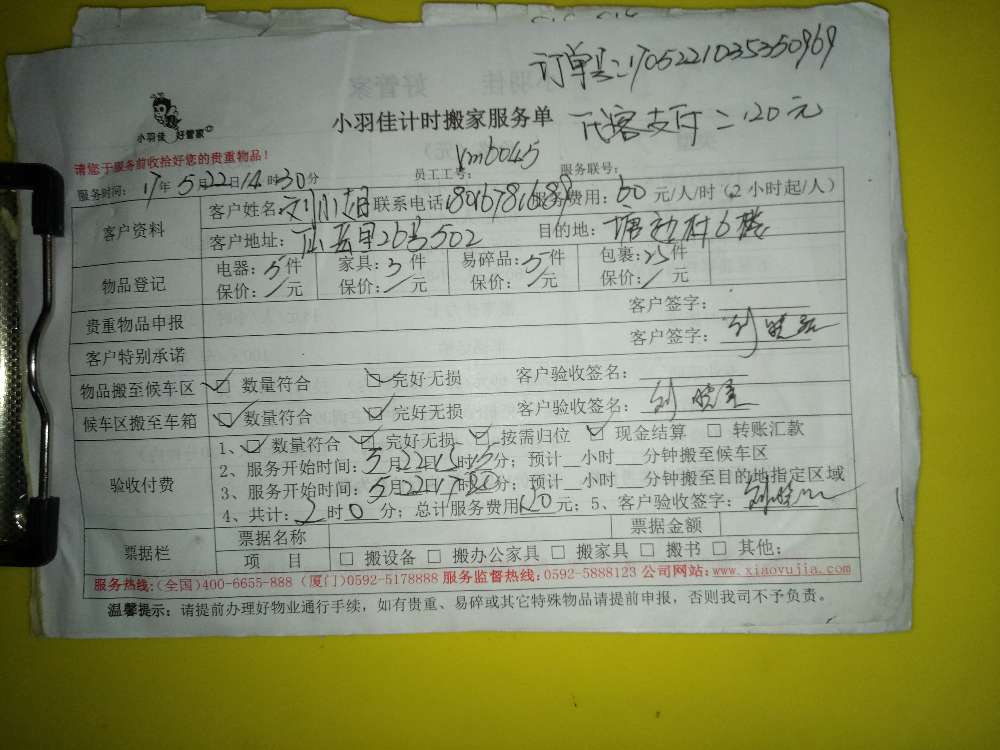 订单号:170522103535096​9
代客支付=120元
小羽佳 好管家
小羽佳计时搬家服务单
请您于服务前收拾好您的贵重物品!
员工工号: xm6045 服务联号:
服务时间: 17年5月22日14时30分
客户资料 客户姓名: 联系电话:18016781689 服务费用:60元/人/时(2小时起/人)
客户地址: 26号502 目的地: 塘边村6楼
物品登记 电器:5件 家具:3件 易碎品:5件 包裹:25件
保价:/元 保价:/元 保价:/元 保价:/元
贵重物品申报 客户签字:
客户特别承诺 客户签字:
物品搬至候车区 数量符合 完好无损 客户验收签名:
候车区搬至车箱 数量符合 完好无损 客户验收签名:
验收付费 1、数量符合 完好无损 按需归位 现金结算 转账汇款
2、服务开始时间:5月22日15时15分;预计__小时___分钟搬至候车区
3、服务开始时间:5月22日17时20分;预计__小时___分钟搬至目的地指定区域
4、共计:2时0分;总计服务费用120元;5、客户验收签字:
票据栏 票据名称 票据金额
项 目 搬设备 搬办公家具 搬家具 搬书 其他:
服务热线:(全国)400-6655-888 (厦门)0592-5178888 服务监督热线:0592-5888123 公司网站:www.xiaoyujia.com
温馨提示:请提前办理好物业通行手续,如有贵重、易碎或其它特殊物品请提前申报,否则我司不予负责。